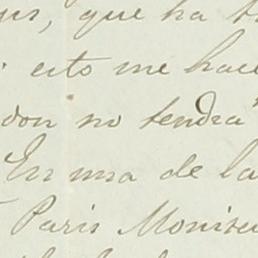 que ha
esto me hace
don no tendra
En una de la
Paris Moniteu